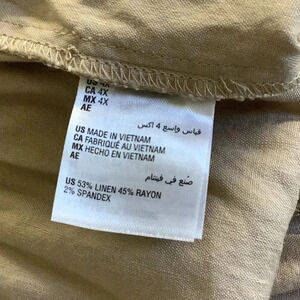 US 4X
CA 4X
MX 4X
AE
قياس واسع 4 اكس
US MADE IN VIETNAM
CA FABRIQUÉ AU VIETNAM
MX HECHO EN VIETNAM
AE
صنع في فيتنام
US 53% LINEN 45% RAYON
2% SPANDEX